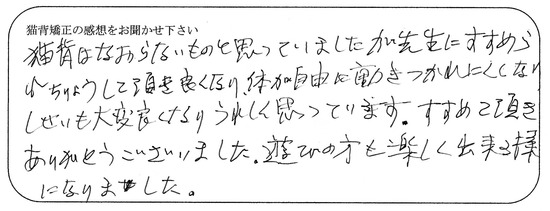 猫背矯正の感想をお聞かせ下さい
猫背はなおらないものと思っていましたが先生にすすめら
れちりょうして頂き良くなり、体が自由に動きつかれにくくなり
しせいも大変良くなりうれしく思っています。すすめて頂き
ありがとうございました。遊びの方も楽しく出来る様
になりました。